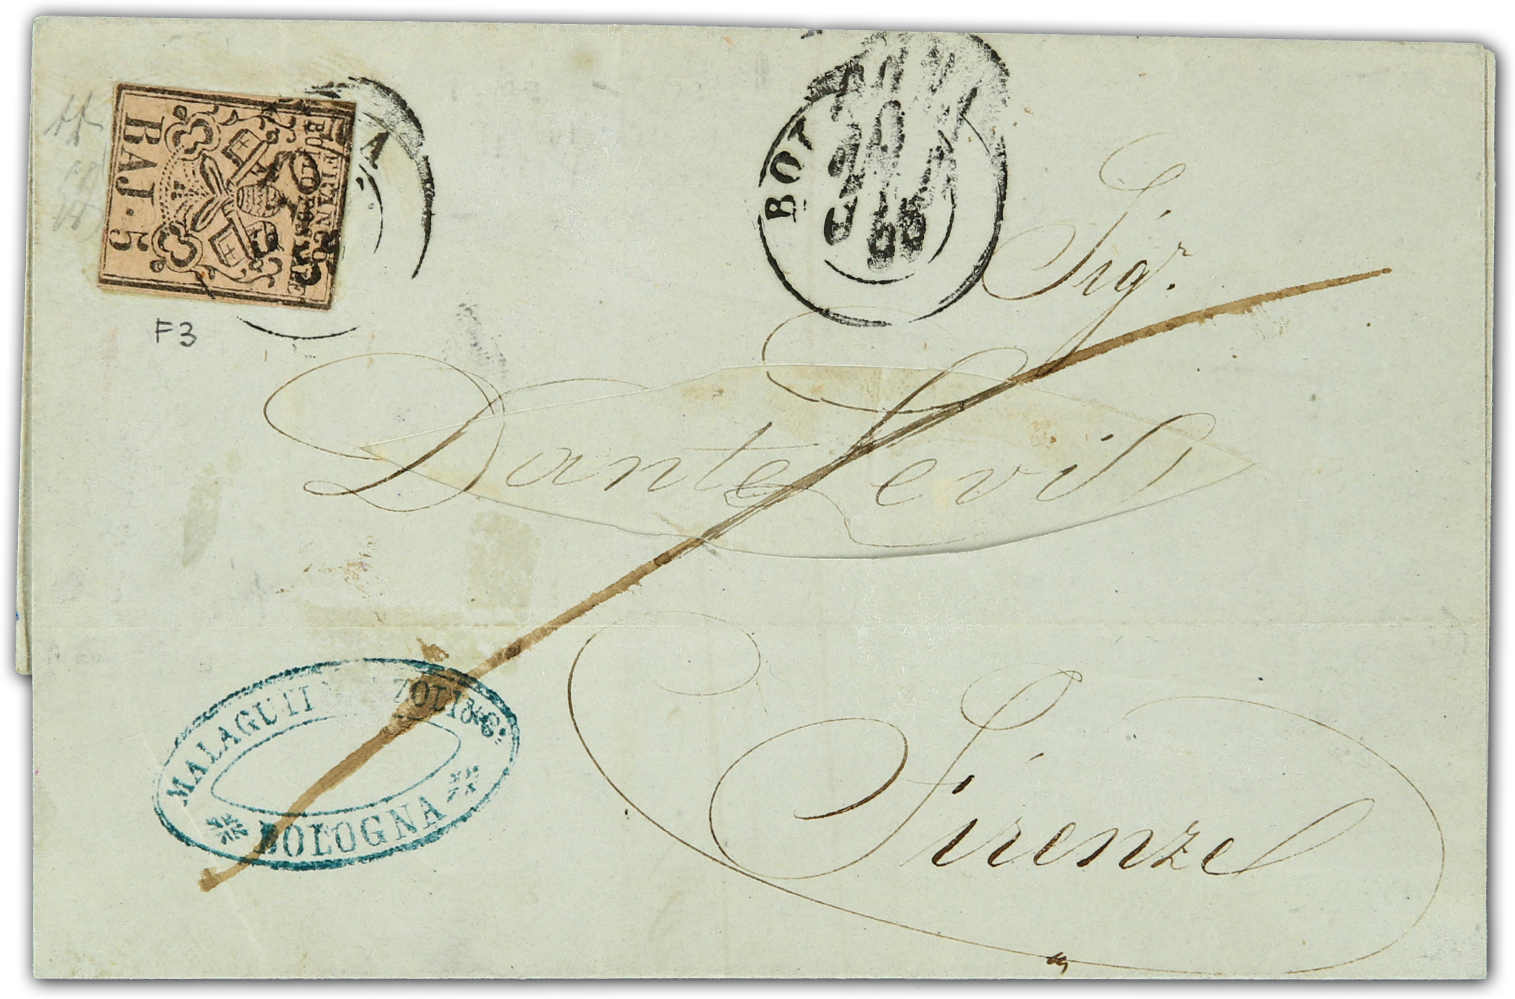 FRANCO
BOLLO POSTALE
BAJ. 5
A
BOL
F3
Sigr.
Dante Levi
Firenze
MALAGUTI ZOLI & C.
BOLOGNA